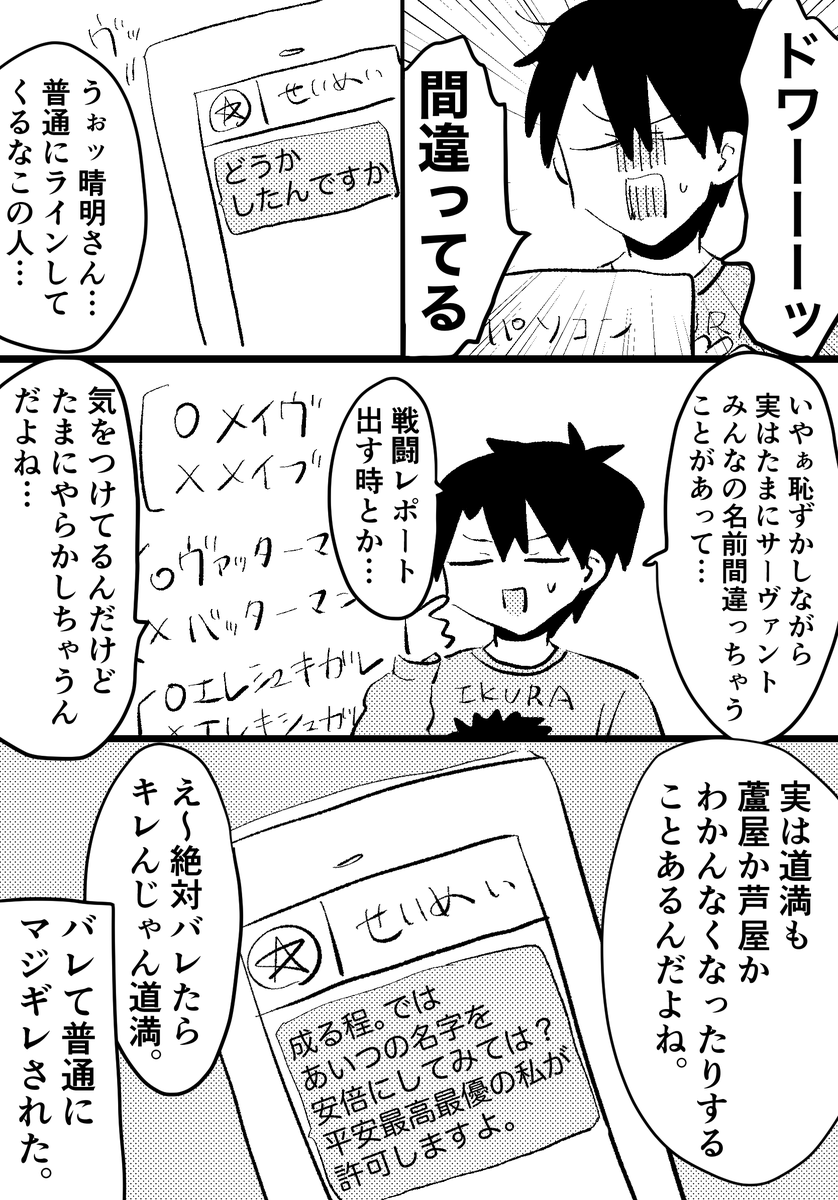 ドワーーーッ
間違ってる
パソコン
ヴッ
せいめい
どうか
したんですか
うぉッ晴明さん…
普通にラインして
くるなこの人…
いやぁ恥ずかしながら
実はたまにサーヴァント
みんなの名前間違っちゃう
ことがあって…
戦闘レポート
出す時とか…
IKURA
○メイヴ
×メイブ
○ヴァッターマ
×バッターマン
○エレシュキガル
×エレキシュガル
気をつけてるんだけど
たまにやらかしちゃうん
だよね…
実は道満も
蘆屋か芦屋か
わかんなくなったりする
ことあるんだよね。
せいめい
成る程。では
あいつの名字を
安倍にしてみては？
平安最高最優の私が
許可しますよ。
え〜絶対バレたら
キレんじゃん道満。
バレて普通に
マジギレされた。